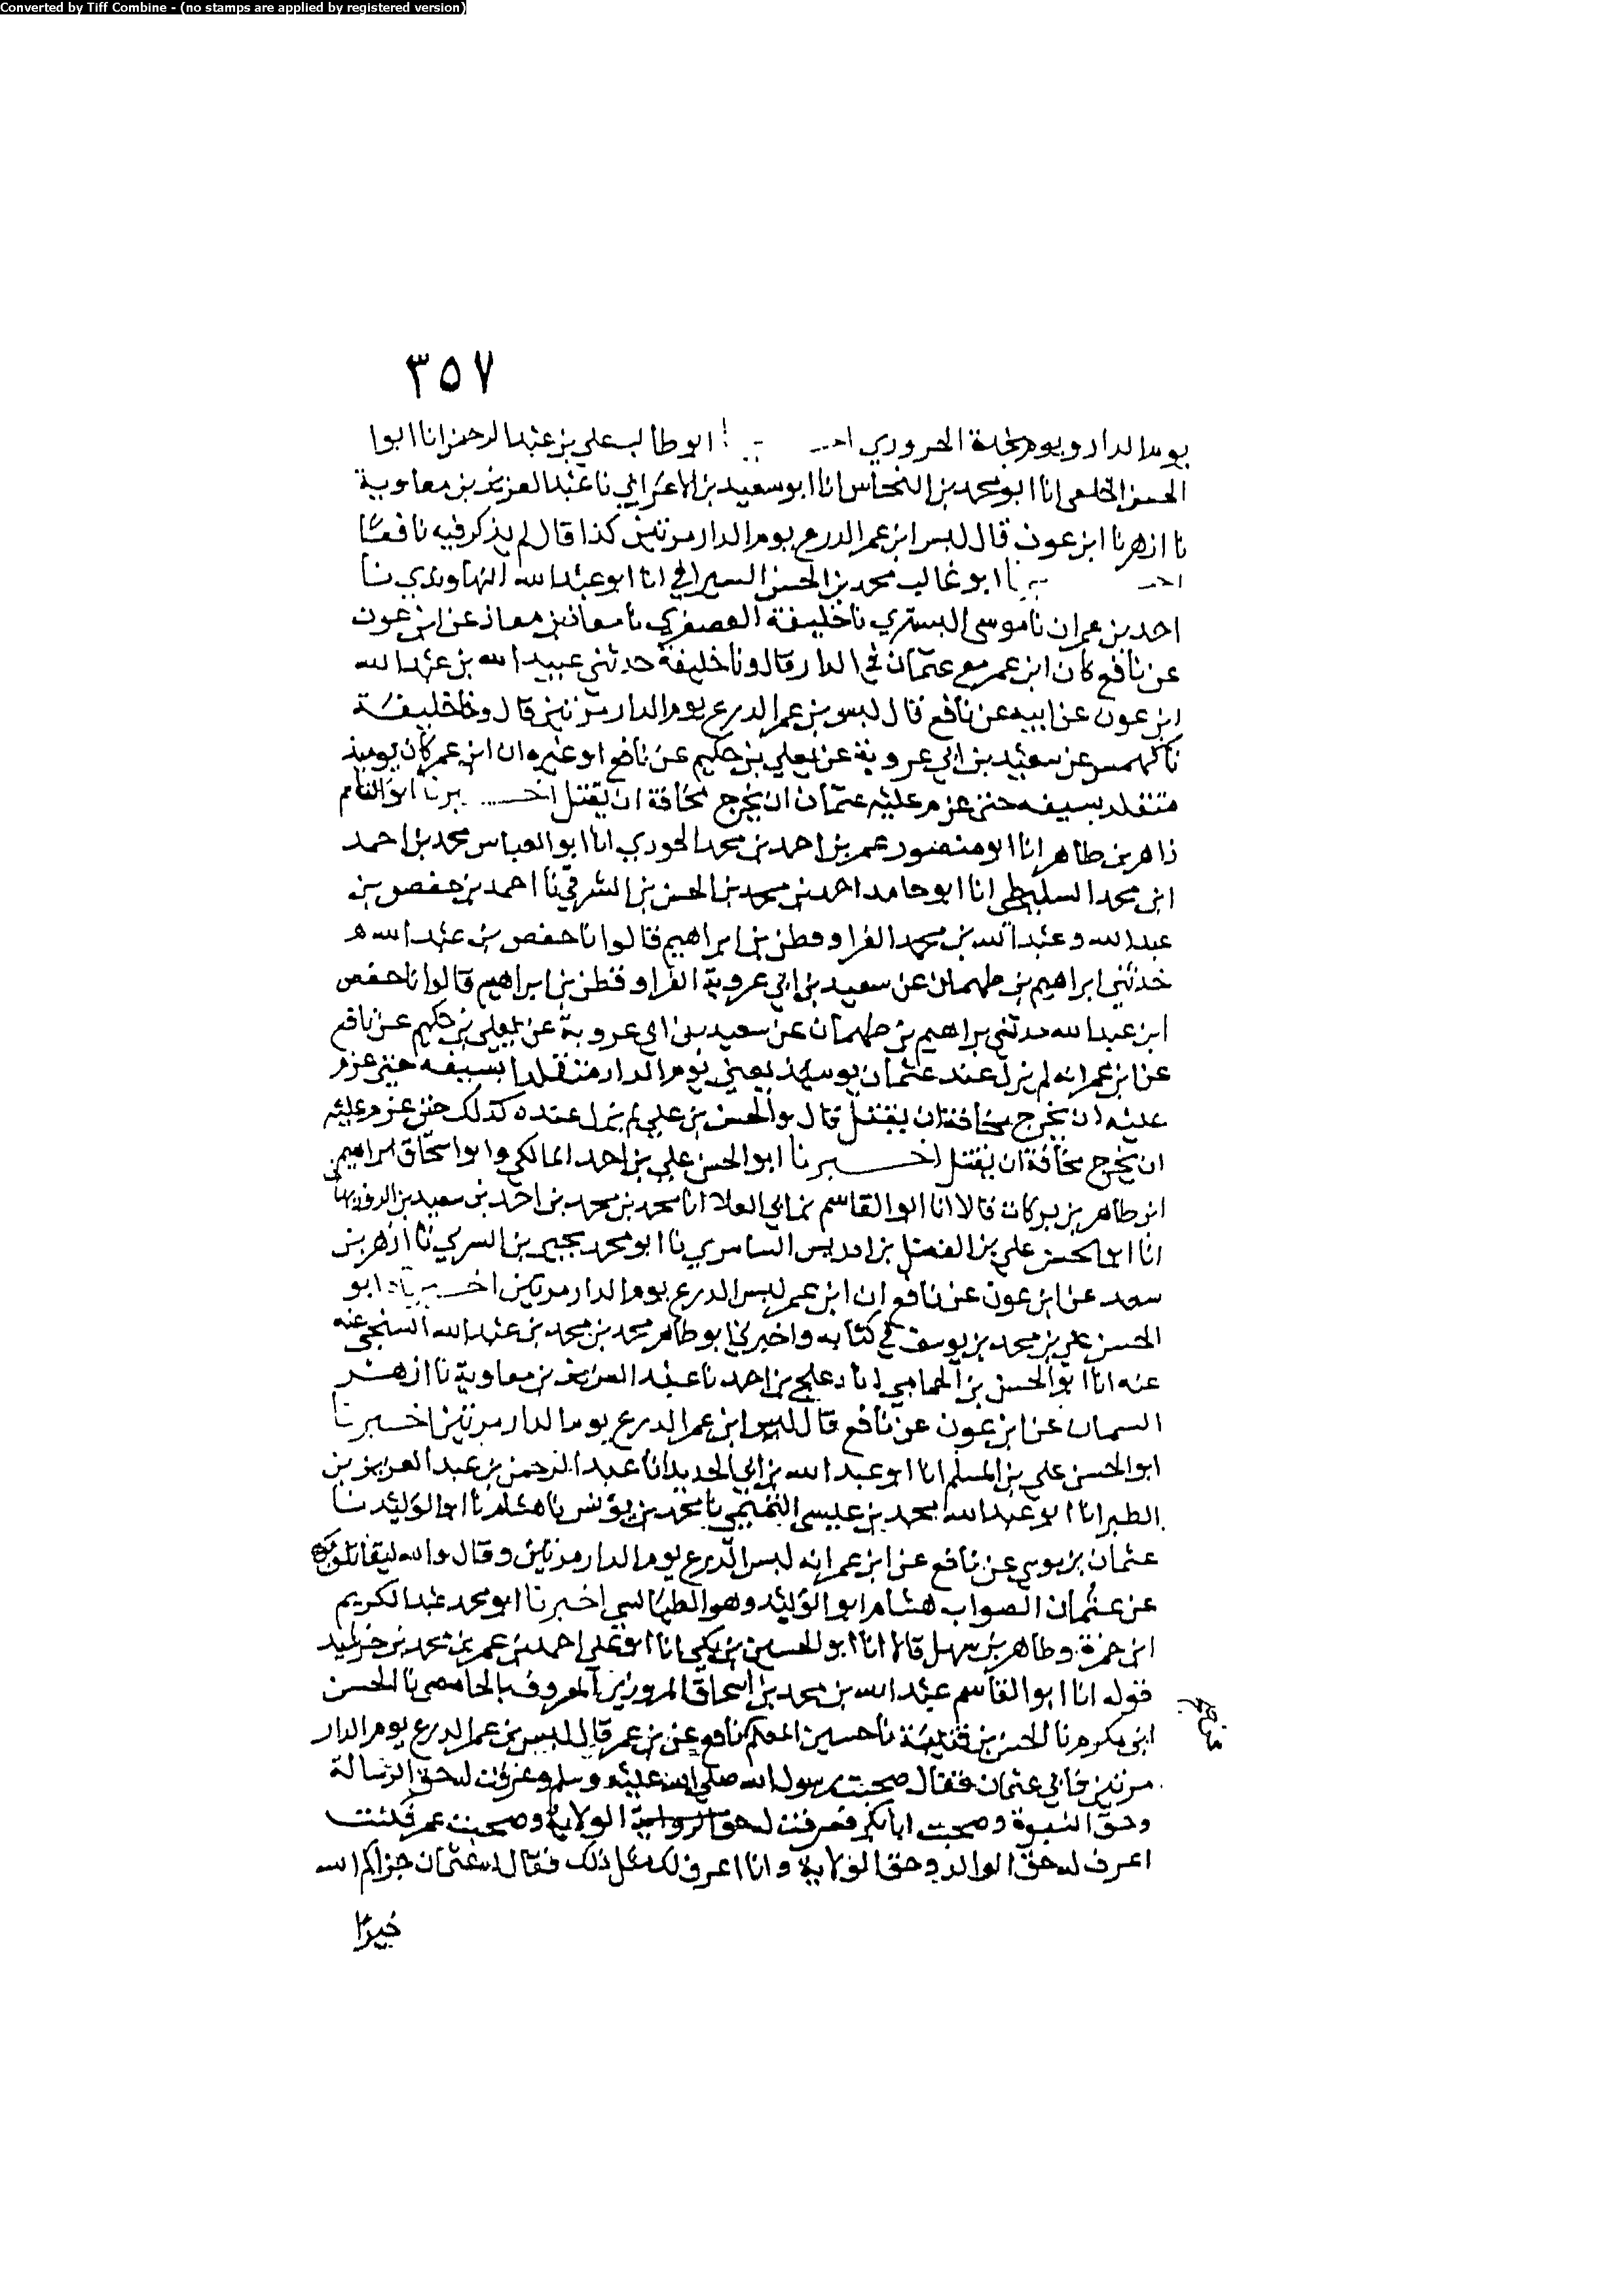 Converted by Tiff Combine - (no stamps are applied by registered version)
٣٥٧
يوم الدار ويوم نجدة الحروري ابو طالب علي بن عبد الرحمن انا ابوا
الحسن الخلعي انا ابو محمد بن النحاس انا ابو سعيد بن الاعرابي نا عبد العزيز بن معاوية
نا ازهر نا ابن عون قال لبس ابن عمر الدرع يوم الدار مرتين كذا قال لم يذكر فيه نافعا
نا ابو غالب محمد بن الحسن السيرافي انا ابو عبد الله النهاوندي نا
احمد بن عمران نا موسى التستري نا خليفة العصفري نا معاذ بن معاذ عن ابن عون
عن نافع كان ابن عمر مع عثمان في الدار قال ونا خليفة حدثني عبيد الله بن عبد الله
ابن عون عن ابيه عن نافع قال لبس بن عمر الدرع يوم الدار مرتين قال ونا خليفة
نا كهمس عن سعيد بن ابي عروبة عن يعلي بن حكيم عن نافع او غيره ان ابن عمر كان يوميذ
متقلد بسيفه حتى عزم عليه عثمان ان يخرج مخافة ان يقتل اخبرنا ابو القاسم
زاهر بن طاهر انا ابو منصور عمر بن احمد بن محمد الجوري انا ابو العباس محمد بن احمد
ابن محمد السليطي انا ابو حامد احمد بن محمد بن الحسن بن الشرقي نا احمد بن حفص بن
عبد الله وعبد الله بن محمد الفرا وقطن بن ابراهيم قالوا نا حفص بن عبد الله
حدثني ابراهيم بن طهمان عن سعيد بن ابي عروبة الفرا وقطن بن ابراهيم قالوا نا حفص
ابن عبد الله حدثني براهيم بن طهمان عن سعيد بن ابي عروبة عن يعلي بن حكيم عن نافع
عن ابن عمر انه لم يزل عند عثمان يوميذ يعني يوم الدار متقلدا بسيفه حتى عزم
عليه ان يخرج مخافة ان يقتل قال والحسن بن علي لم يزل عنده كذلك حتى عزم عليه
ان يخرج مخافة ان يقتل اخبرنا ابو الحسن علي بن احمد المالكي وابو اسحاق ابراهيم
ابن طاهر بن بركات قالا انا ابو القاسم بن ابي العلا انا محمد بن محمد بن احمد بن سعيد بن الروزبهان
انا ابو الحسن علي بن الفضل بن ادريس السامري نا ابو محمد يحيى بن السري نا ازهر بن
سعد عن ابن عون عن نافع ان ابن عمر لبس الدرع يوم الدار مرتين اخبرنا ابو
الحسن علي بن محمد بن يوسف في كتابه واخبرني ابو طاهر محمد بن محمد بن عبد الله السنجي عنه
عنه انا ابو الحسن بن الحمامي انا دعلج بن احمد نا عبد العزيز بن معاوية نا ازهر
السمان عن ابن عون عن نافع قال لبس ابن عمر الدرع يوم الدار مرتين اخبرنا
ابو الحسن علي بن المسلم انا ابو عبد الله بن ابي الحديد انا عبد الرحمن بن عبد العزيز بن
الطبر انا ابو عبد الله محمد بن عيسى التميمي نا محمد بن يونس نا هشام نا ابو الوليد نا
عثمان بن موسى عن نافع عن ابن عمر انه لبس الدرع يوم الدار مرتين وقال والله
عن عثمان الصواب هشام ابو الوليد وهو الطيالسي اخبرنا ابو محمد عبد الكريم
ابن حمزة وطاهر بن سهل قالا انا ابو الحسين بن مكي انا ابو علي احمد بن عمر بن محمد بن خرشيد
قوله انا ابو القاسم عبد الله بن محمد بن اسحاق المروزي المعروف بالحامض نا الحسن
ابن مكرم نا الحسن بن قتيبة نا حسين المعلم نافع عن بن عمر قال لبس بن عمر الدرع يوم الدار
مرتين فاتي عثمان فقال صحبت رسول الله صلى الله عليه وسلم وعرفت له حق الرسالة
وحق النبوة وصحبت ابا بكر فعرفت له حق الولاية وصحبت عمر فكنت
اعرف له حق الوالد وحق الولاية وانا اعرف لك مثل ذلك فقال له عثمان جزاكم الله
خيرا